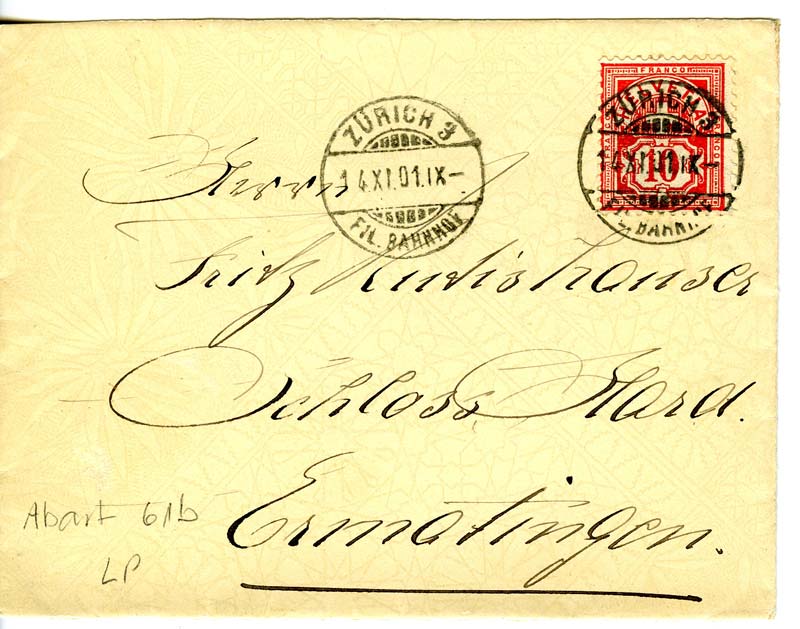 ZÜRICH 3
14.XI.01.IX-
FIL. BAHNHOF
FRANCO
10
ZÜRICH 3
14.XI.01.IX-
FIL. BAHNH
Herrn
Fritz Rudishauser
Schloss Hard.
Ermatingen.
Abart 61b
LP